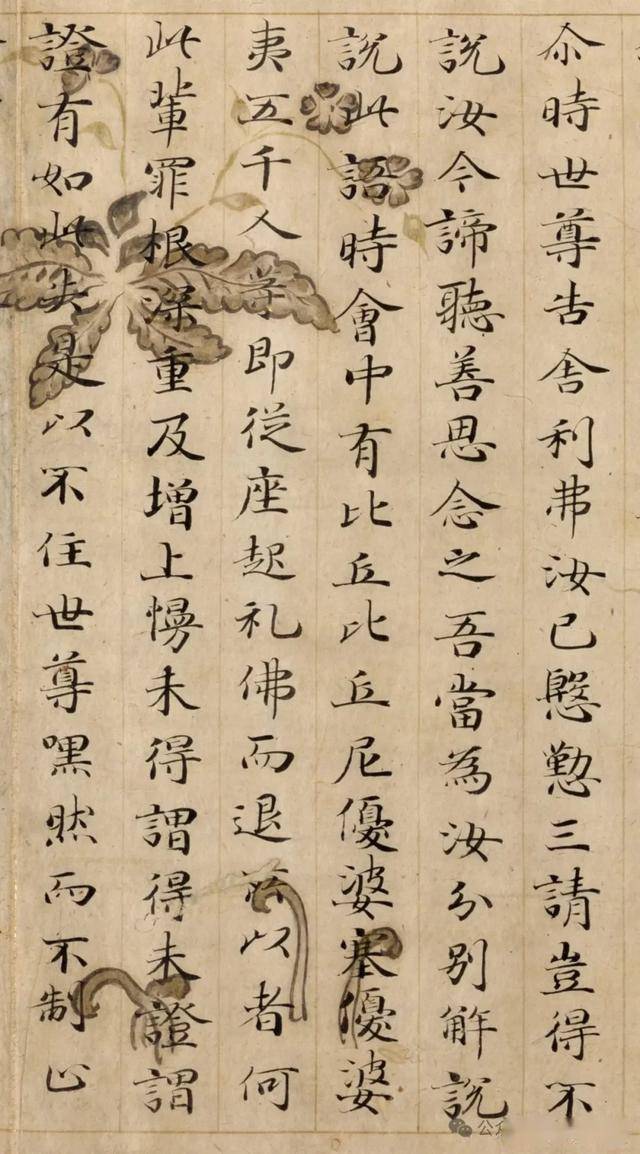 尒時世尊告舍利弗汝已慇懃三請豈得不
說汝今諦聽善思念之吾當為汝分別解說
說此語時會中有比丘比丘尼優婆塞優婆
夷五千人等即從座起礼佛而退所以者何
此輩罪根深重及增上慢未得謂得未證謂
證有如此失是以不住世尊嘿然而不制止